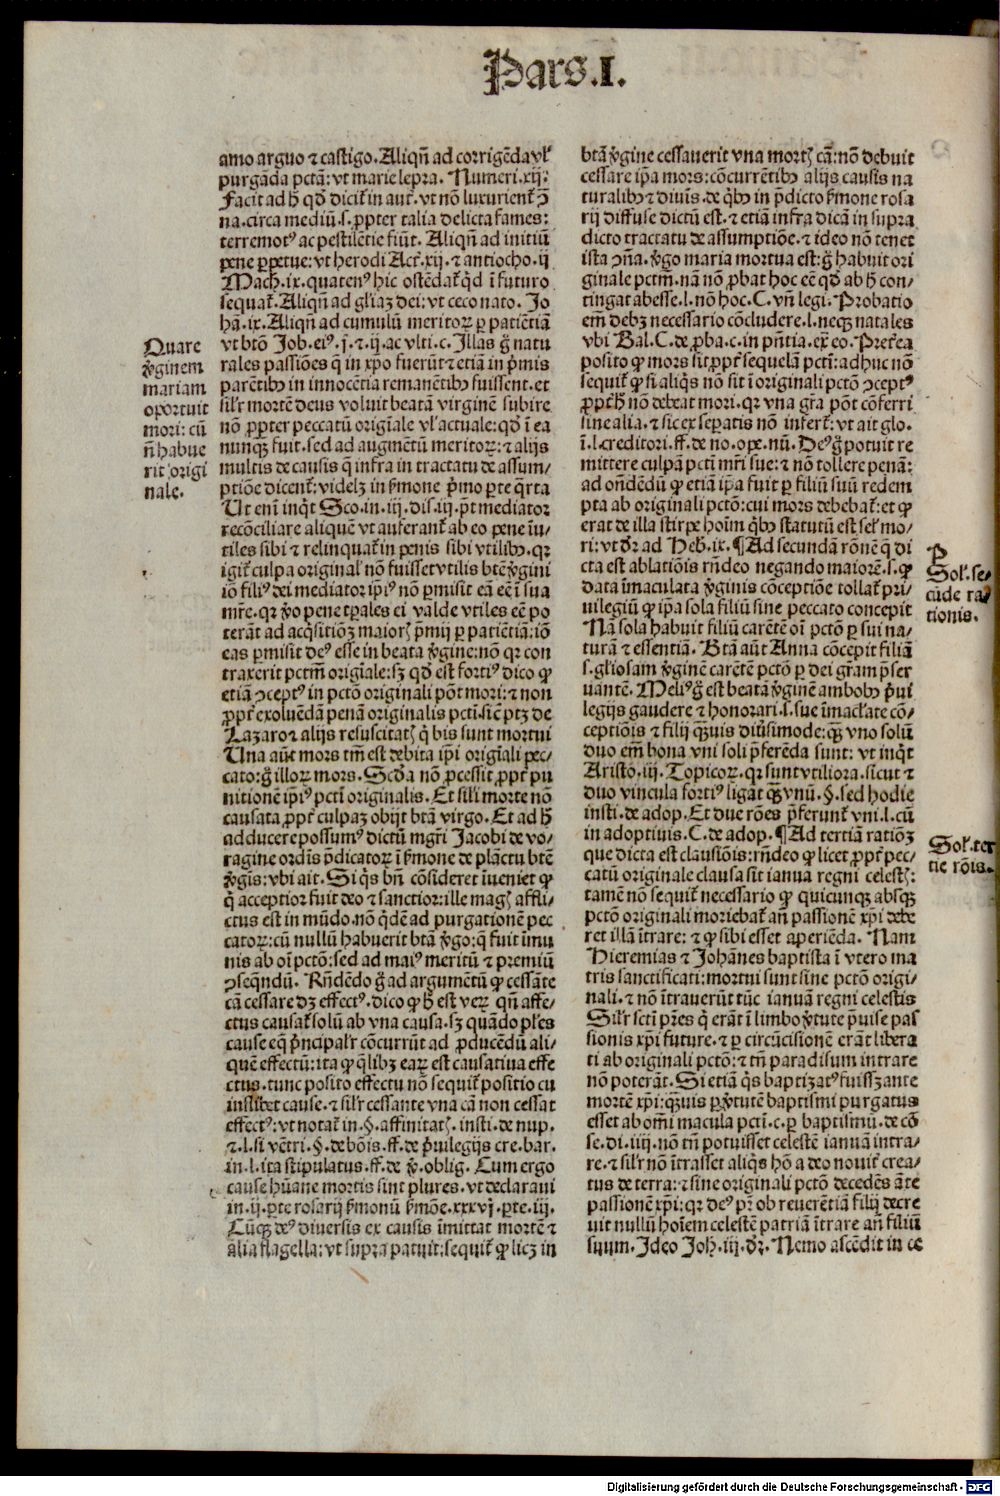 Pars.I.
amo arguo ⁊ castigo. Aliqñ ad corrigēda vł
purgāda pctā: vt marie lepra. Numeri.xij:
Facit ad h̄ qđ dicit in aut. vt nō luxurient ↄ̄
na. circa mediū.s. ꝓpter talia delicta fames:
terremotꝰ ac pestilētie fiūt. Aliqñ ad initiū
pene ꝑpetue: vt herodi Act.xij. ⁊ antiocho.ij
Mach.ix. quatenꝰ hic ostēdat qđ ī futuro
sequat. Aliqñ ad gliaȝ dei: vt ceco nato. Jo
hā.ix. Aliqñ ad cumulū meritoꝝ ꝑ patiētiā
vt btō Job. eiꝰ.j. ⁊.ij. ac vlti.c. Illas g̊ natu
rales passiōes q̄ in xpo fuerūt ⁊ etiā in p̄mis
parētibꝰ in innocētia remanētibꝰ fuissent. et
silr mortē deus voluit beatā virginē subire
nō ꝓpter peccatū origiale vl actuale: qđ ī ea
nunqꝫ fuit. sed ad augmētū meritoꝝ: ⁊ alijs
multis de causis q̄ infra in tractatu de assum/
ptiōe dicent: videlȝ in ẜmone p̄mo ꝑte q̄rta
Ut eni inq̇t Sco. in.iij. dis.iij. pt mediator
recōciliare aliquē vt auferant ab eo pene īu/
tiles sibi ⁊ relinquat in penis sibi vtilibꝰ. qꝛ
igit culpa original nō fuisset vtilis btē v̄gini
iō filiꝰ dei mediator ip̄iꝰ nō ꝑmisit eā eē ī sua
mr̄e. qꝛ v̄o pene tꝑales ei valde vtiles eē po
terāt ad acq̇sitiōȝ maioꝝ p̄mij ꝑ patiētiā: iō
eas ꝑmisit deꝰ esse in beata v̄gine: nō qꝛ con
traxerit pctm̄ origiale: sȝ qđ est fortiꝰ dico ꝙ
etiā ↄceptꝰ in pctō originali pōt mori: ⁊ non
ꝓpt exoluēdā penā originalis pcti. siē ptȝ de
Lazaro ⁊ alijs resuscitatꝭ q̇ bis sunt mortui
Una aut mors tm̄ est debita ip̄i origiali pec/
cato: g̊ illoꝝ mors. Scđa nō ꝓcessit ꝓpt pu
nitionē ip̄iꝰ pcti originalis. Et sili morte nō
causata ꝓpt culpaȝ obijt btā virgo. Et ad h̄
adducere possumꝰ dictū mgr̄i Jacobi de vo/
ragine ordis p̄dicatoꝝ ī ẜmone de plāctu btē
v̄gis: vbi ait. Si q̇s bn̄ cōsideret īueniet ꝙ
q̇ acceptior fuit deo ⁊ sanctior: ille magꝭ affli/
ctus est in mūdo. nō q̇dē ad purgationē pec
catoꝝ: cū nullū habuerit btā v̄go: q̄ fuit īmu
nis ab oī pctō: sed ad maiꝰ meritū ⁊ premiū
ↄseqn̄dū. Rn̄dēdo g̊ ad argumētū ꝙ cessāte
cā cessare dȝ effectꝰ. dico ꝙ h̄ est veꝝ qn̄ affe/
ctus causat solū ab vna causa. sȝ quādo ples
cause eq̄ p̄ncipalr cōcurrūt ad ꝓducēdū ali/
quē effectū: ita ꝙ q̄libȝ eaꝝ est causatiua effe
ctus. tunc posito effectu nō sequit positio cu
iuslibet cause. ⁊ silr cessante vna cā non cessat
effectꝰ: vt notat in.§. affinitatꝭ. insti. de nup.
⁊.l. si vētri.§. de bōis. ff. de p̄uilegijs cre. bar.
in.l. ita stipulatus. ff. de v̄. oblig. Cum ergo
cause hūane mortis sint plures. vt declaraui
in.ij. ꝑte rosarij ẜmonū ẜmōe.xxxvj. ꝑte.iij.
Cūqꝫ deꝰ diuersis ex causis īmittat mortē ⁊
alia flagella: vt supra patuit: sequit ꝙ licȝ in
Quare
v̄ginem
mariam
oportuit
mori: cū
n̄ habue
rit origi
nale.
btā v̄gine cessauerit vna mortꝭ cā: nō debuit
cessare ip̄a mors: cōcurrētibꝰ alijs causis na
turalibꝰ ⁊ diuis. de q̇bꝰ in p̄dicto ẜmone rosa
rij diffuse dictū est. ⁊ etiā infra dicā in supra
dicto tractatu de assumptiōe. ⁊ ideo nō tenet
ista ↄn̄a. v̄go maria mortua est: g̊ habuit ori
ginale pctm̄. nā nō ꝓbat hoc eē qđ ab h̄ con/
tingat abesse. l. nō hoc. C. vn̄ legi. Probatio
em̄ debȝ necessario cōcludere. l. neqꝫ natales
vbi Bal. C. de ꝓba. c. in pn̄tia. ex̄ eo. Preťea
posito ꝙ mors sit ꝓpt sequelā pcti: adhuc nō
sequit ꝙ si aliq̇s nō sit ī originali pctō ↄceptꝰ
ꝓpt h̄ nō debeat mori. qꝛ vna gr̄a pōt cōferri
sine alia. ⁊ sic ex seꝑatis nō infert: vt ait glo.
ī.l. creditori. ff. de no. oꝑe. nū. Deꝰ g̊ potuit re
mittere culpā pcti mr̄i sue: ⁊ nō tollere penā:
ad on̄dēdū ꝙ etiā ip̄a fuit ꝑ filiū suū redem
pta ab originali pctō: cui mors debebat: et ꝙ
erat de illa stirpe hoīm q̇bꝰ statutū est sel mo/
ri: vt dꝛ ad Heb.ix. ¶Ad secundā rōnē q̄ di
cta est ablatiōis rn̄deo negando maiorē.s. ꝙ
data īmaculata v̄ginis cōceptiōe tollat pri/
uilegiū ꝙ ip̄a sola filiū sine peccato concepit
Nā sola habuit filiū carētē oī pctō ꝑ sui na/
turā ⁊ essentiā. Btā aūt Anna cōcepit filiā
s. gliosam v̄ginē carētē pctō ꝑ dei gr̄am p̄ser
uantē. Meliꝰ g̊ est beatā v̄ginē ambobꝰ p̄ui
legijs gaudere ⁊ honorari.s. sue īmaclate cō/
ceptiōis ⁊ filij q̄ꝫuis diūsimode: qꝫ vno solū
duo em̄ bona vni soli p̄ferēda sunt: vt inq̇t
Aristo.iij. Topicoꝝ. qꝛ sunt vtiliora. sicut ⁊
duo vincula fortiꝰ ligāt qꝫ vnū.§. sed hodie
insti. de adop. Et due rōes p̄ferunt vni. l. cū
in adoptiuis. C. de adop. ¶Ad tertiā ratiōȝ
que dicta est clausiōis: rn̄deo ꝙ licet ꝓpt pec/
catū originale clausa sit ianua regni celestꝭ:
tamē nō sequit necessario ꝙ quicunqꝫ absqꝫ
pctō originali moriebat an̄ passionē xp̄i debe
ret illā ītrare: ⁊ ꝙ sibi esset aperiēda. Nam
Hieremias ⁊ Johānes baptista ī vtero ma
tris sanctificati: mortui sunt sine pctō origi/
nali. ⁊ nō ītrauerūt tūc ianuā regni celestis
Silr sct̄i pr̄es q̇ erāt ī limbo v̄tute p̄uise pas
sionis xp̄i future. ⁊ ꝑ circūcisionē erāt libera
ti ab originali pctō: ⁊ tn̄ paradisum intrare
nō poterāt. Si etiā q̇s baptizatꝰ fuissȝ ante
mortē xp̄i: q̄ꝫuis ꝑ v̄tutē baptismi purgatus
esset ab omi macula pcti. c. ꝑ baptismū. de cō
se. di.iiij. nō tm̄ potuisset celestē ianuā intra/
re. ⁊ silr nō ītrasset aliq̇s hō a deo nouit crea/
tus de terra: ⁊ sine originali pctō decedēs āte
passionē xp̄i: qꝛ deꝰ pr̄ ob reuerētiā filij decre
uit nullū hoīem celestē patriā ītrare an̄ filiū
suum. Ideo Joh.iij. dꝛ. Nemo ascēdit in ce
Sol. se/
cūde ra/
tionis.
Sol. ter
tie rōis.
Digitalisierung gefördert durch die Deutsche Forschungsgemeinschaft - DFG